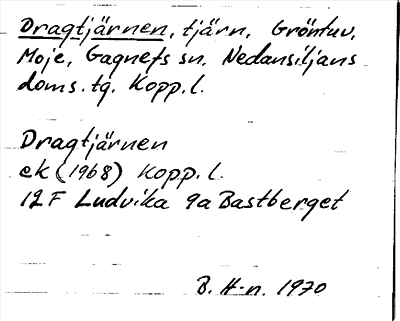 Dragtjärnen, tjärn, Gröntuv,
Moje, Gagnefs sn, Nedansiljans
doms.tg. Kopp.l.
Dragtjärnen
ek (1968) Kopp.l.
12F Ludvika 9a Bastberget
B. H-n. 1970